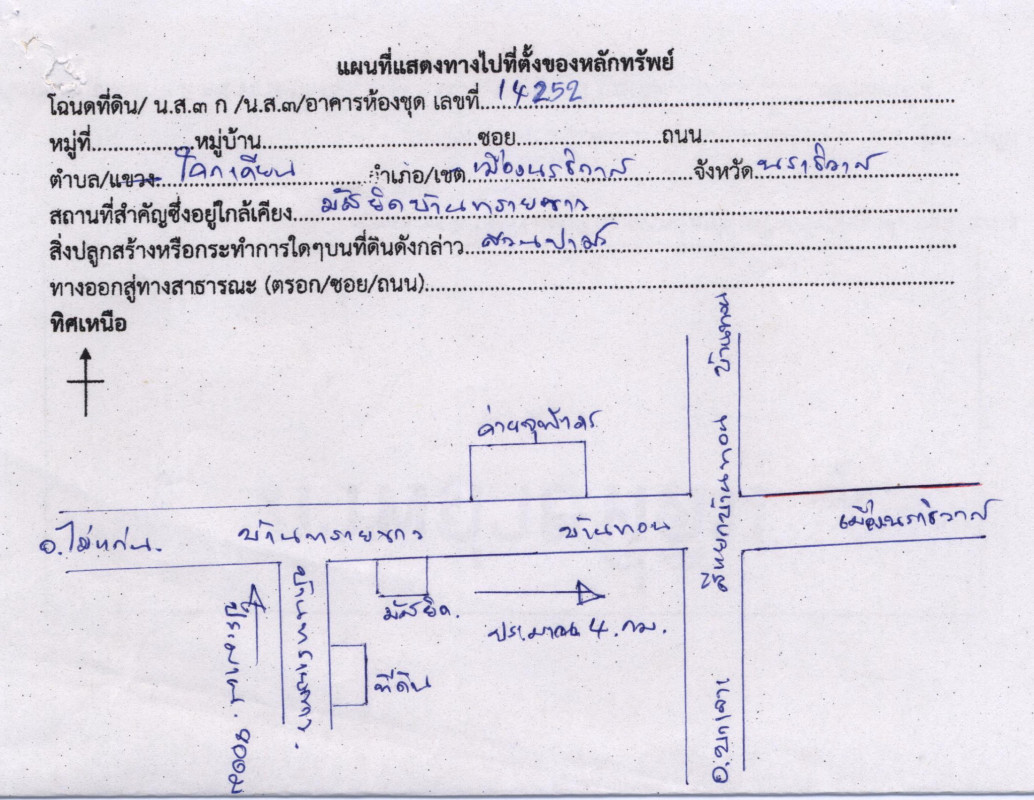 แผนที่แสดงทางไปที่ตั้งของหลักทรัพย์
โฉนดที่ดิน/ น.ส.๓ ก /น.ส.๓/อาคารห้องชุด เลขที่ 14252
หมู่ที่ หมู่บ้าน ซอย ถนน
ตำบล/แขวง โคกเคียน อำเภอ/เขต เมืองนราธิวาส จังหวัด นราธิวาส
สถานที่สำคัญซึ่งอยู่ใกล้เคียง มัสยิดบ้านทรายขาว
สิ่งปลูกสร้างหรือกระทำการใดๆบนที่ดินดังกล่าว สวนปาล์ม
ทางออกสู่ทางสาธารณะ (ตรอก/ซอย/ถนน)
ทิศเหนือ
บ้านทอน
ค่ายจุฬาภรณ์
สี่แยกบ้านทอน
อ.ไม้แก่น.
บ้านทรายขาว
บ้านทอน
เมืองนราธิวาส
บ้านทรายขาว.
มัสยิด.
ประมาณ 4. กม.
ที่ดิน
ประมาณ.
อ.บาเจาะ